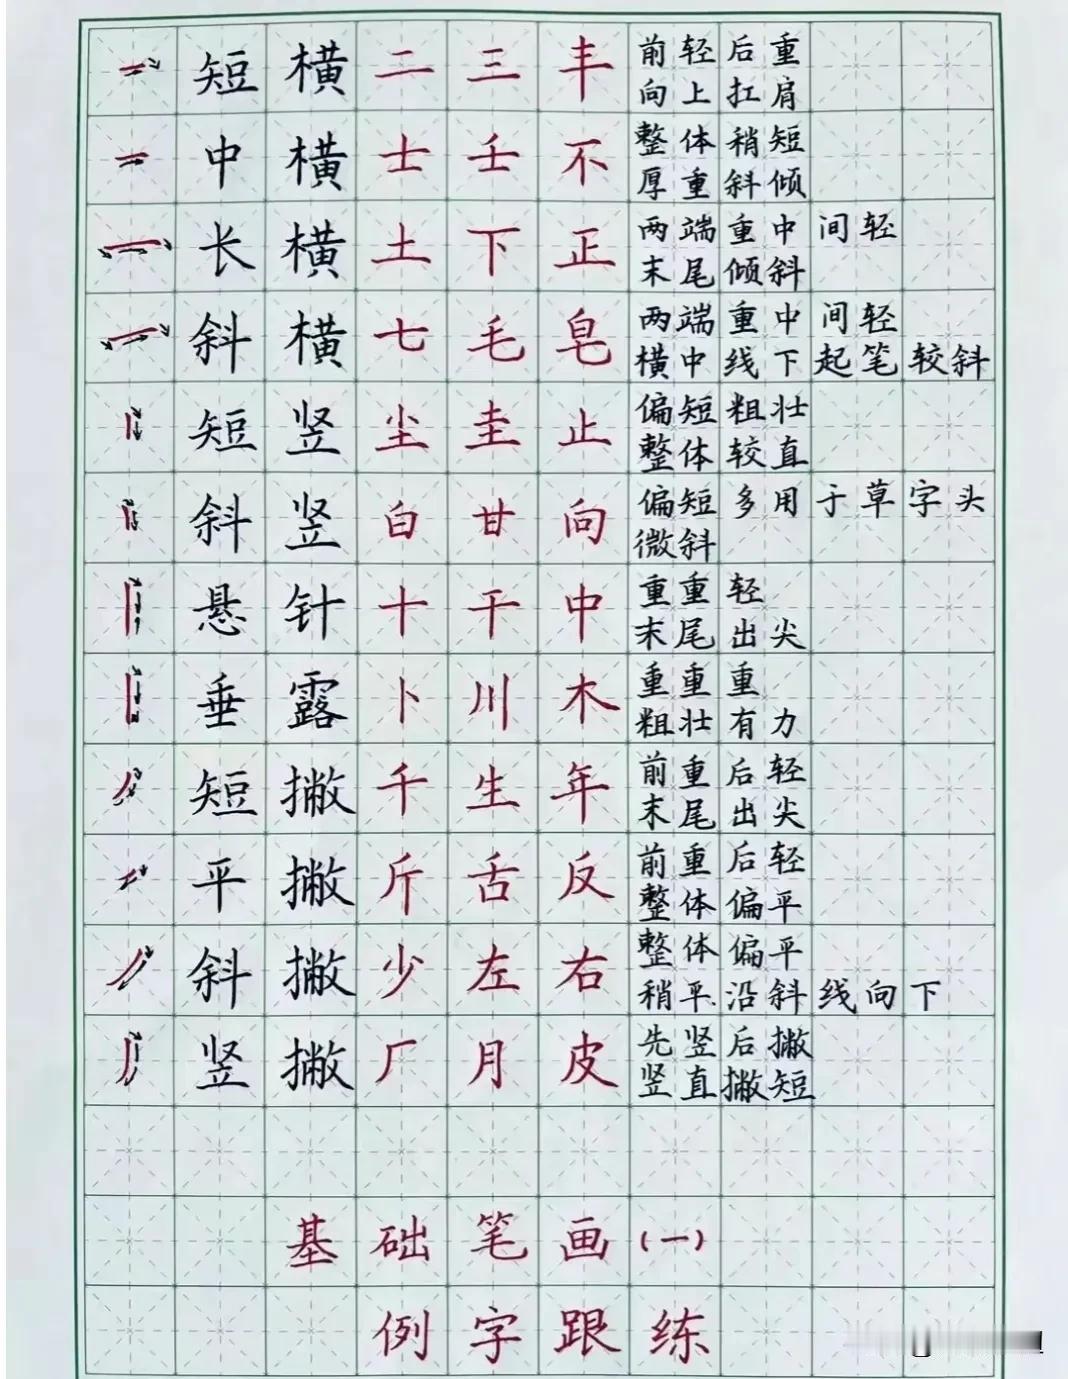 短横二三丰前轻后重
向上扛肩
中横士壬不整体稍短
厚重斜倾
长横土下正两端重中间轻
末尾倾斜
斜横七毛皂两端重中间轻
横中线下起笔较斜
短竖尘圭止偏短粗壮
整体较直
斜竖白甘向偏短多用于草字头
微斜
悬针十干中重重轻
末尾出尖
垂露卜川木重重重
粗壮有力
短撇千生年前重后轻
末尾出尖
平撇斤舌反前重后轻
整体偏平
斜撇少左右整体偏平
稍平.沿斜线向下
竖撇厂月皮先竖后撇
竖直撇短
基础笔画(一)
例字跟练